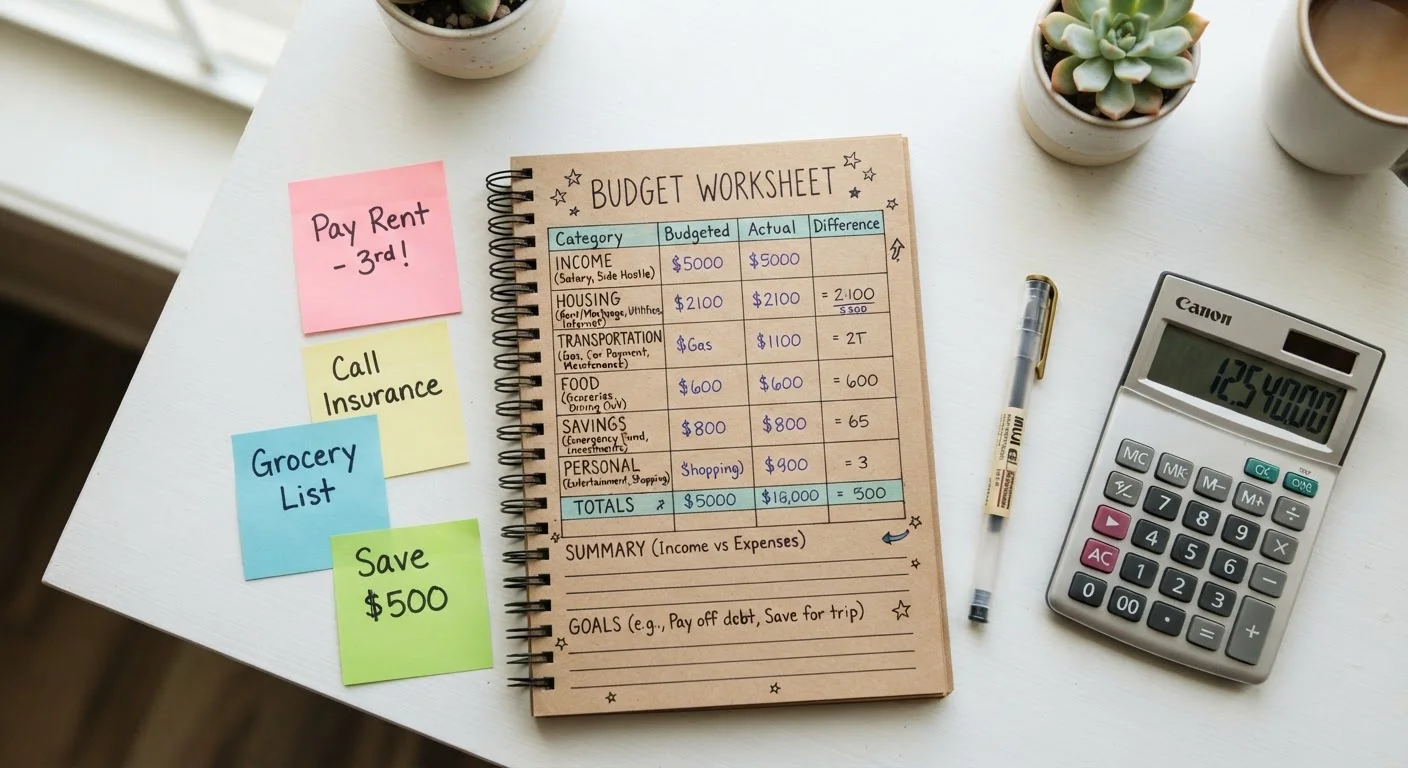 Pay Rent
- 3rd!
Call
Insurance
Grocery
List
Save
$500
BUDGET WORKSHEET
Category Budgeted Actual Difference
INCOME $5000 $5000
(Salary, Side Hustle)
HOUSING $2100 $2100 = 2100
Utilities,
TRANSPORTATION $Gas $1100 = 2T
Payment,
FOOD $600 $600 = 600
SAVINGS $800 $800 = 65
(Emergency Fund,
PERSONAL $hopping) $900 = 3
(Entertainment, Shopping)
TOTALS $5000 $18,000 = 500
SUMMARY (Income vs Expenses)
GOALS (e.g., Pay off debt, Save for trip)
MUJI
Canon
MC M- M+
7 8 9 ÷
4 5 6 ×
AC 1 2 3 −
0 00 . = +